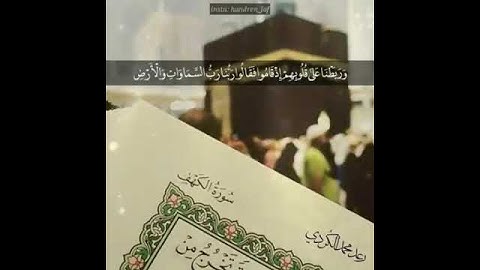 insta: handren_jaf
وَرَبَطْنَا عَلَىٰ قُلُوبِهِمْ إِذْ قَامُوا فَقَالُوا رَبُّنَا رَبُّ السَّمَاوَاتِ وَالْأَرْضِ
سُورَةُ الكَهْفِ
رعد محمد الكردي
تَخْرُجُ مِنْ